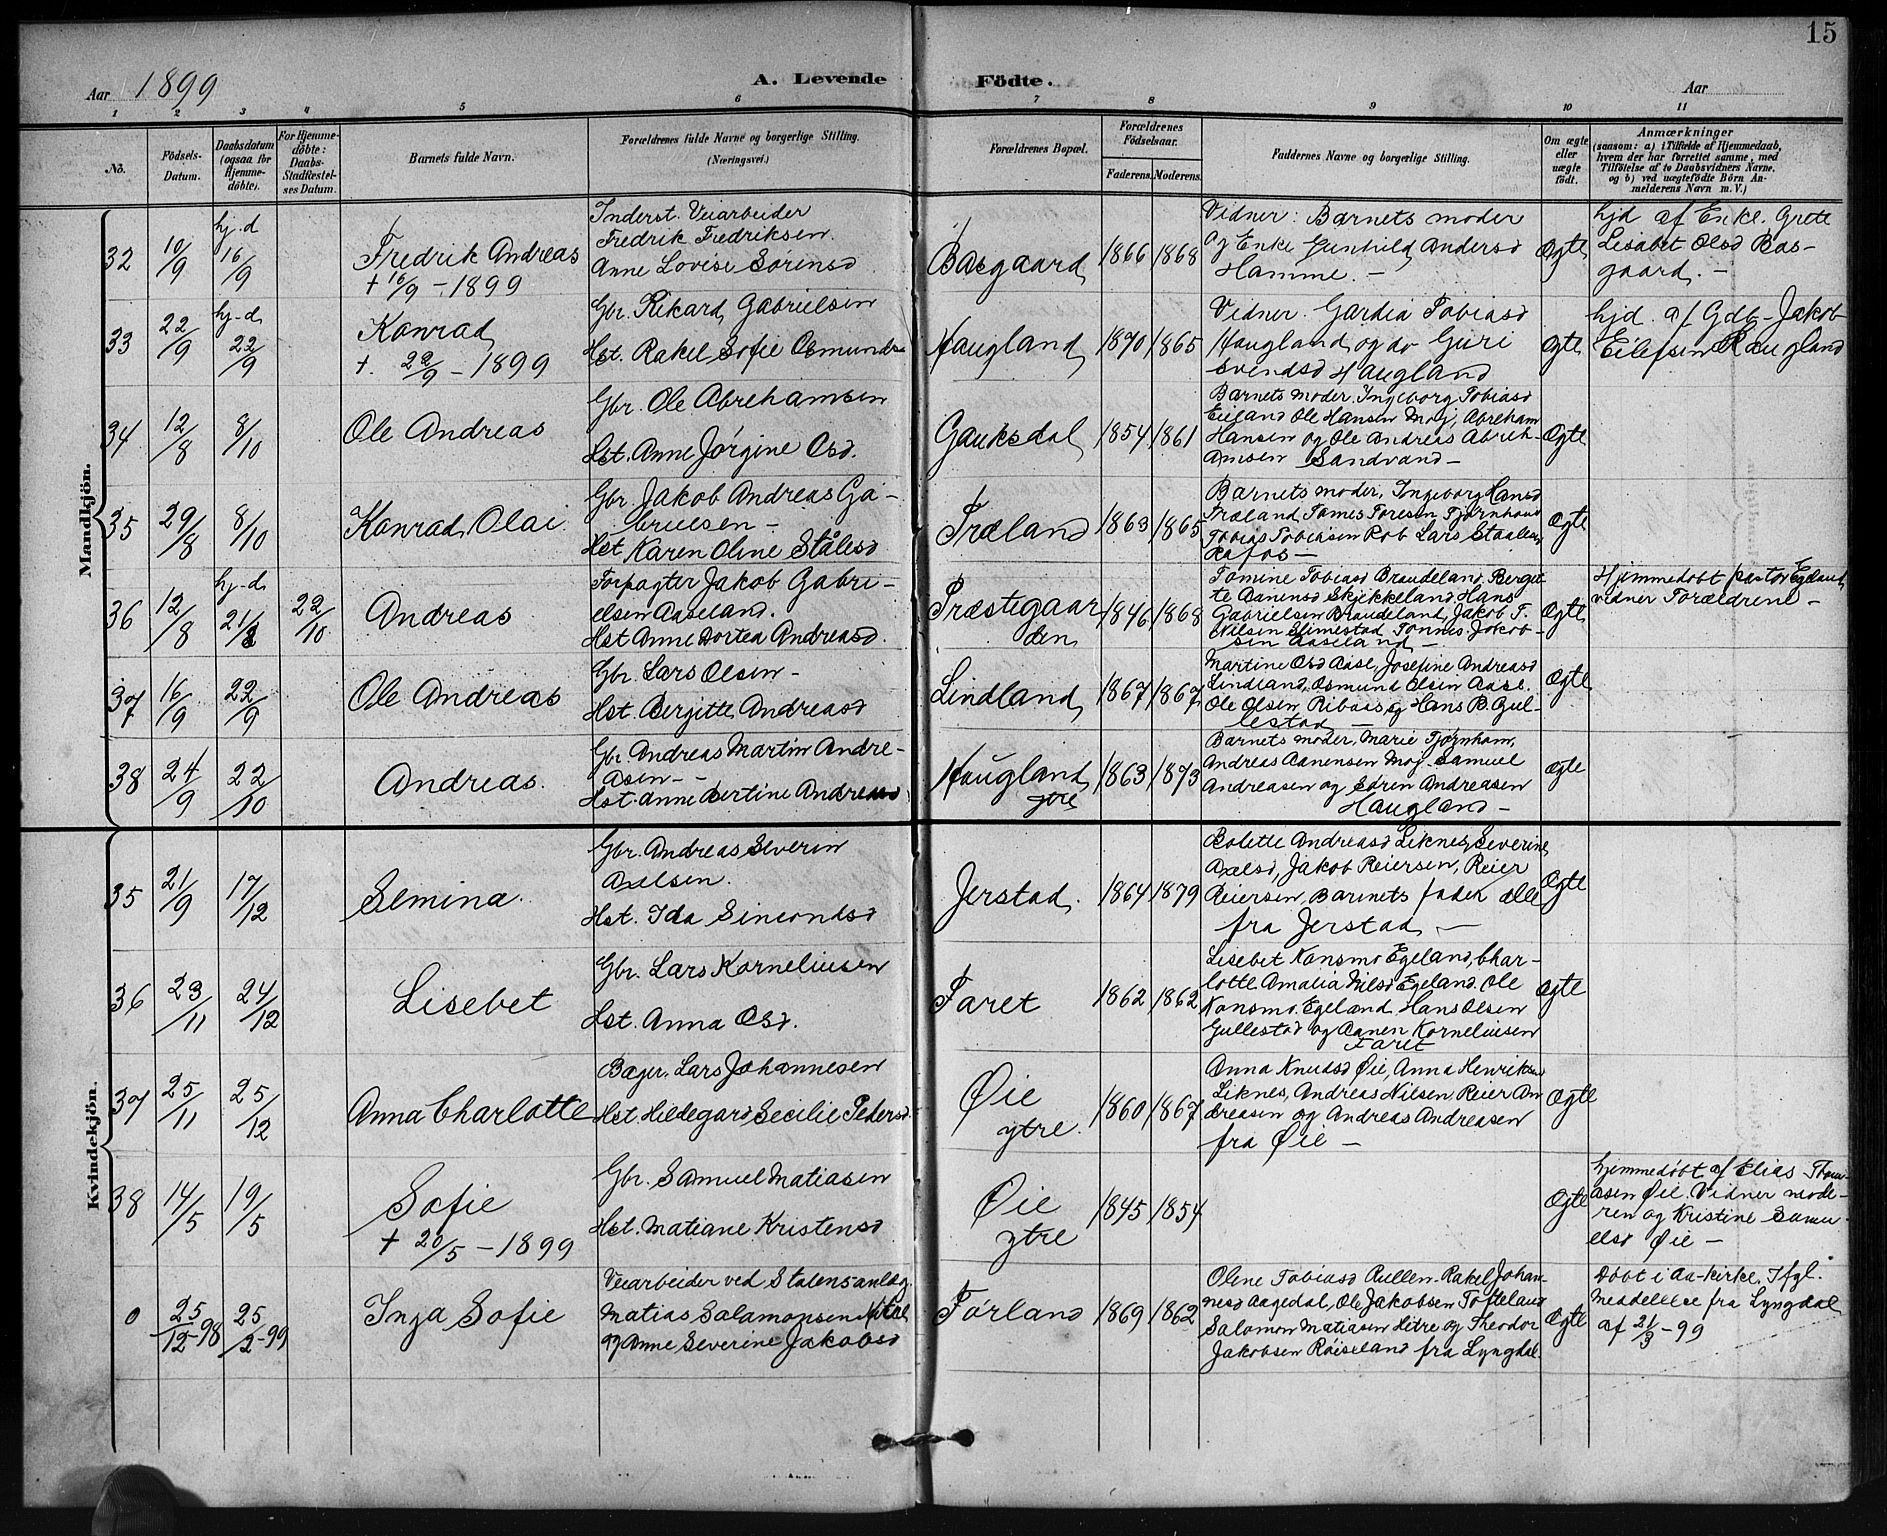 15
Aar 1899
A. Levende Födte.
Aar
1 2 3 4 5 6 7 8 9 10 11
No.
Födsels-
Datum.
Daabsdatum
(ogsaa for
Hjemme-
döbte).
For Hjemme-
döbte:
Daabs-
Stadfæstel-
ses Datum.
Barnets fulde Navn.
Forældrenes fulde Navne og borgerlige Stilling.
(Næringsvei.)
Forældrenes Bopæl.
Forældrenes
Födselsaar.
Faderens. Moderens.
Faddernes Navne og borgerlige Stilling.
Om ægte
eller
uægte
født.
Anmærkninger
(saasom: a) i Tilfælde af Hjemmedaab,
hvem der har forrettet samme, med
Tilföielse af to Daabsvidners Navne,
og b) ved uægtefödte Börn An-
melderens Navn m. V.)
Mandkjön.
32
10/9
hj-d
16/9
Fredrik Andreas
+ 16/9 - 1899
Inderst. Veiarbeider
Fredrik Fredriksen.
Anne Lovise Sorensd
Basgaard
1866 1868
Vidner: Barnets moder
og Enke Gunhild Andersd
Hamme. -
Ægte
hjd af Enke. Grete
Lisabet Olsd Bas-
gaard. -
33
22/9
hj-d
22/9
Konrad
+. 22/9 - 1899
Gbr. Rikard Gabrielsen
Hst. Rakel Sofie Osmunds
Haugland
1870 1865
Vidner. Gardia Tobiasd
Haugland og Guri
Svendsd Haugland
Ægte
hjd. af Gdb- Jakob
Eilefsen Haugland
34
12/8
8/10
Ole Andreas
Gbr. Ole Abrehamsen
Hst. Anne Jørgine Osd.
Gauksdal
1854 1861
Barnets moder. Ingeborg Tobiasd
Eiland Ole Hansen Moj, Abreham
Hansen og Ole Andreas Abreh-
amsen Sandvand -
Ægte
35
29/8
8/10
Konrad Olai
Gbr. Jakob Andreas Ga-
brielsen -
Hst Karen Oline Stålesd
Træland
1863 1865
Barnets moder, Ingeborg Hansd
Træland, Tomes Toresen Tjørnhom
Tobias Tobiasen Rob Lars Staalesen
Rafos -
Ægte
36
12/8
hj-d
21/8
22/10
Andreas
Forpagter Jakob Gabri-
elsen Aaseland.
Hst Anne Dortea Andreasd.
Præstegaar
den
1846 1868
Tomine Tobiasd Braudeland, Bergit-
te Aanensd Skjekkeland Hans
Gabrielsen Braudeland, Jakob T.
Nilsen Slimestad Tonnes Jakob-
sen Aaseland -
Ægte
Hjemmedøbt pastor Egeland
vidner Forældrene -
37
16/9
22/9
Ole Andreas
Gbr. Lars Olsen -
Hst. Bergitte Andreasd
Lindland
1867 1867
Martine Osd Aase, Josefine Andreasd
Lindland, Osmund Olsen Aase,
Ole Olsen Ribaas og Hans B. Gul-
lestad -
Ægte
38
24/9
22/10
Andreas.
Gbr. Andreas Martin Andre-
asen -
Hst. Anne Bertine Andreasd
Haugland
ytre
1863 1873
Barnets moder, Marie Tjørnham,
Andreas Aanensen Moj. Samuel
Andreasen og Søren Andreasen
Haugland -
Ægte
Kvindekjön.
35
21/9
17/12
Semina.
Gbr. Andreas Severin
Axelsen.
Hst. Ida Simondsd
Jerstad.
1864 1879
Bolette Andreasd Liknes, Severine
Axelsd, Jakob Reiersen, Reier
Reiersen, Barnets fader alle
fra Jerstad -
Ægte
36
23/11
24/12
Lisebet
Gbr. Lars Korneliusen
Hst. Anna Osd.
Faret
1862 1862
Lisebet Konsmo Egeland, Char-
lotte Amalia Nilsd Egeland. Ole
Konsmo Egeland, Hans Olsen
Gullestad og Aanen Korneliusen
Faret
Ægte
37
25/11
25/12
Anna Charlotte
Bager. Lars Johannesen
Hst. Hildegard Secilie Pedersd
Øie
ytre.
1860 1867
Anna Knudsd Øie, Anna Henriksen
Liknes, Andreas Nilsen, Reier An
dreasen og Andreas Andreasen
fra Øie -
Ægte
38
14/5
19/5
Sofie
+ 20/5 - 1899
Gbr. Samuel Matiasen
Hst. Matiane Kristensd
Øie
ytre
1845 1854
Ægte
hjemmedøbt af Elias Thom-
asen Øie. Vidner mode-
ren og Kristine Samu-
elsd Øie -
0
25/12-98
25/2-99
Inga Sofie
Veiarbeider ved Statensanlæg
Matias Salamonsen Hitre
og Anne Severine Jakobsd
Førland
1869 1862
Olene Tobiasd Rullen. Rakel Johan-
nesd Aagedal, Ole Jakobsen Tofteland
Salomon Matiasen Hitre og Theodor
Jakobsen Røiseland fra Lyngdal.
Ægte
Døbt i Aa-kirke. Ifgl.
Meddelelse fra Lyngdal
af 21/3-99